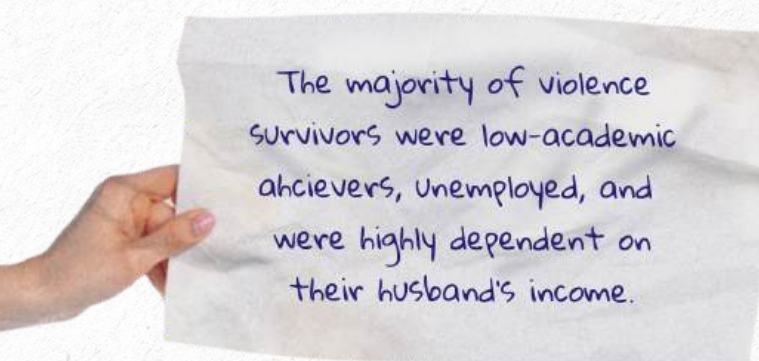 The majority of violence
survivors were low-academic
ahcievers, unemployed, and
were highly dependent on
their husband's income.